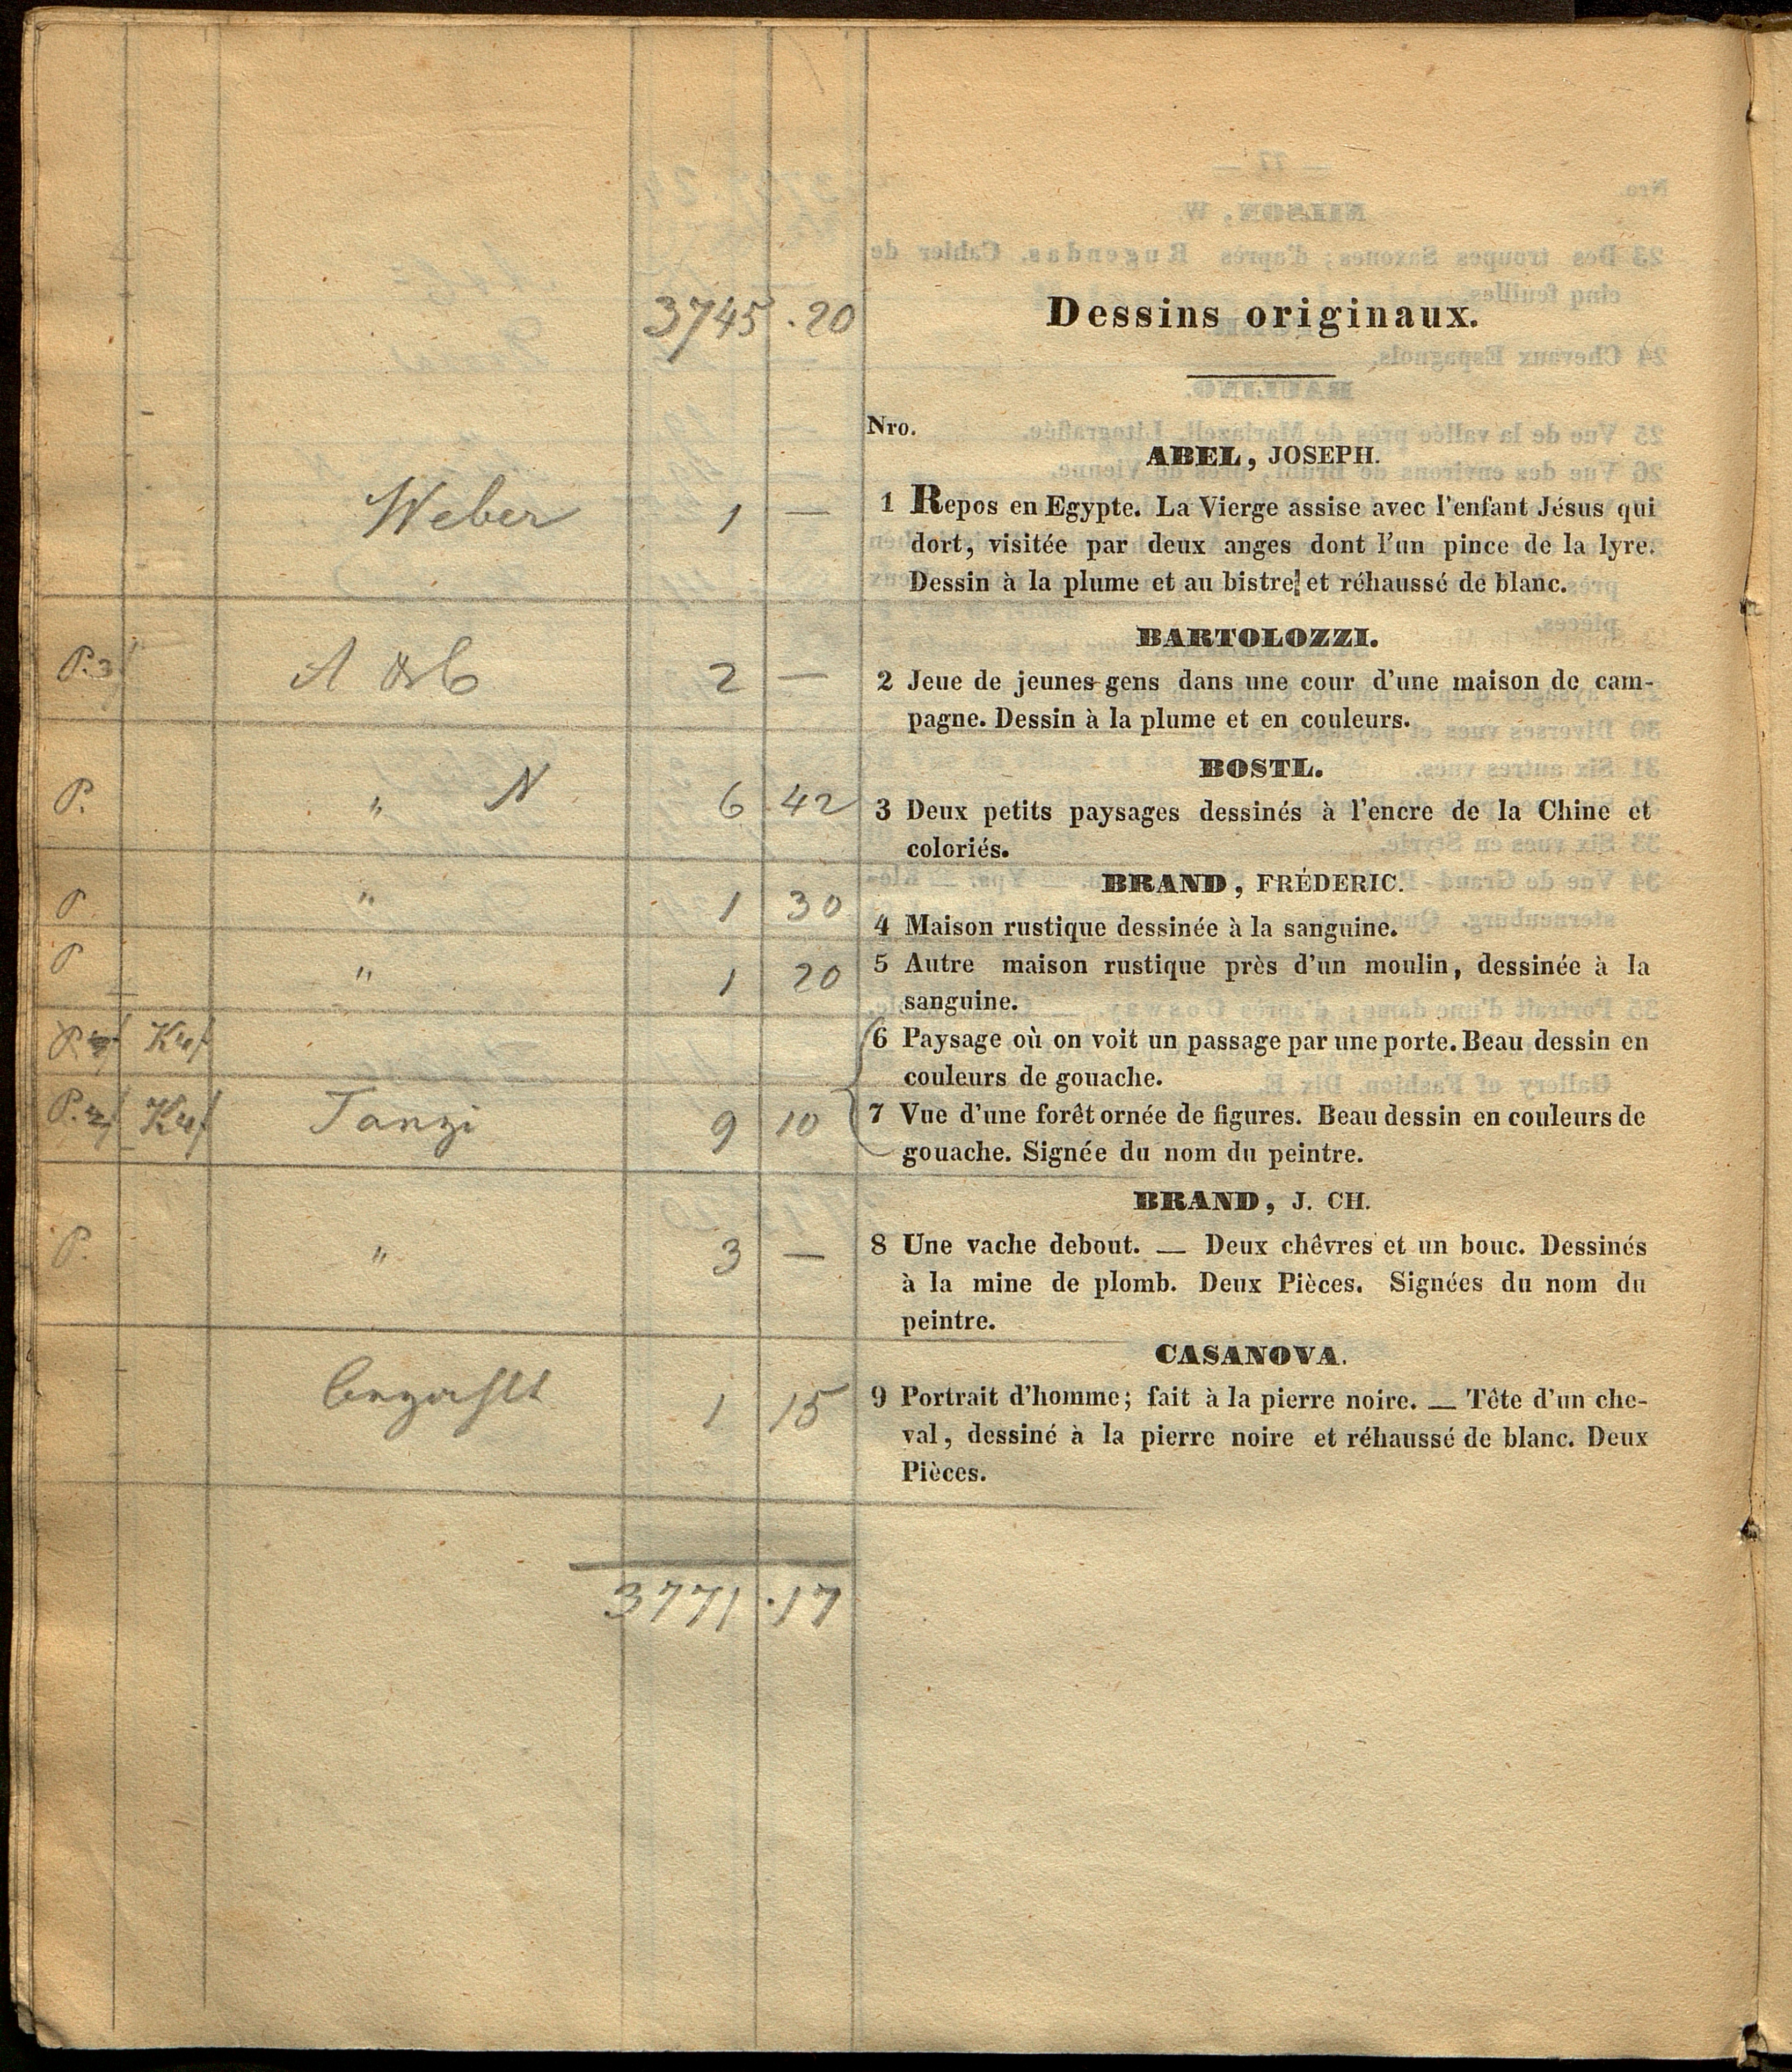 3745 . 20 Dessins originaux.
Nro.
ABEL, JOSEPH.
Weber 1 — 1 Repos en Egypte. La Vierge assise avec l'enfant Jésus qui
dort, visitée par deux anges dont l'un pince de la lyre.
Dessin à la plume et au bistre et réhaussé de blanc.
BARTOLOZZI.
P. 3 A & C 2 — 2 Jeue de jeunes-gens dans une cour d'une maison de cam-
pagne. Dessin à la plume et en couleurs.
BOSTL.
P. " N 6 42 3 Deux petits paysages dessinés à l'encre de la Chine et
coloriés.
BRAND, FRÉDERIC.
P " 1 30 4 Maison rustique dessinée à la sanguine.
P " 1 20 5 Autre maison rustique près d'un moulin, dessinée à la
sanguine.
P. 6 Paysage où on voit un passage par une porte. Beau dessin en
couleurs de gouache.
P. Tanzi 9 10 7 Vue d'une forêt ornée de figures. Beau dessin en couleurs de
gouache. Signée du nom du peintre.
BRAND, J. CH.
P. " 3 — 8 Une vache debout. — Deux chêvres et un bouc. Dessinés
à la mine de plomb. Deux Pièces. Signées du nom du
peintre.
CASANOVA.
bezahlt 1 15 9 Portrait d'homme; fait à la pierre noire. — Tête d'un che-
val, dessiné à la pierre noire et réhaussé de blanc. Deux
Pièces.
3771 . 17